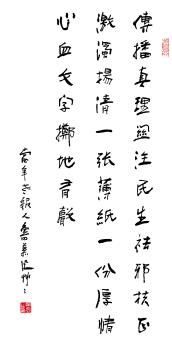 傳播真理關注民生祛邪扶正
激濁揚清一张薄紙一份厚情
心血文字擲地有聲